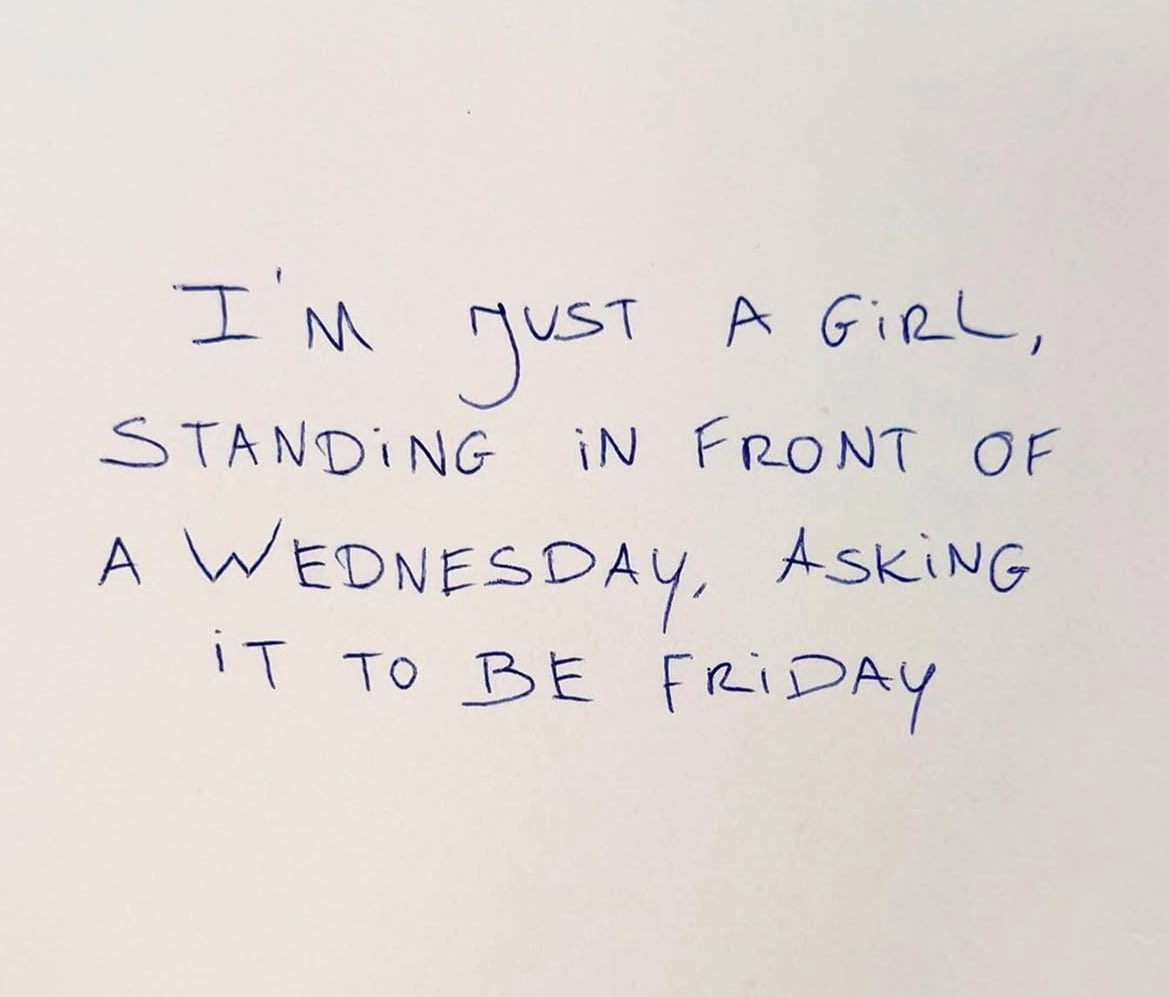 I'M JUST A GiRL,
STANDiNG iN FRONT OF
A WEDNESDAY, ASKiNG
iT TO BE FRiDAY